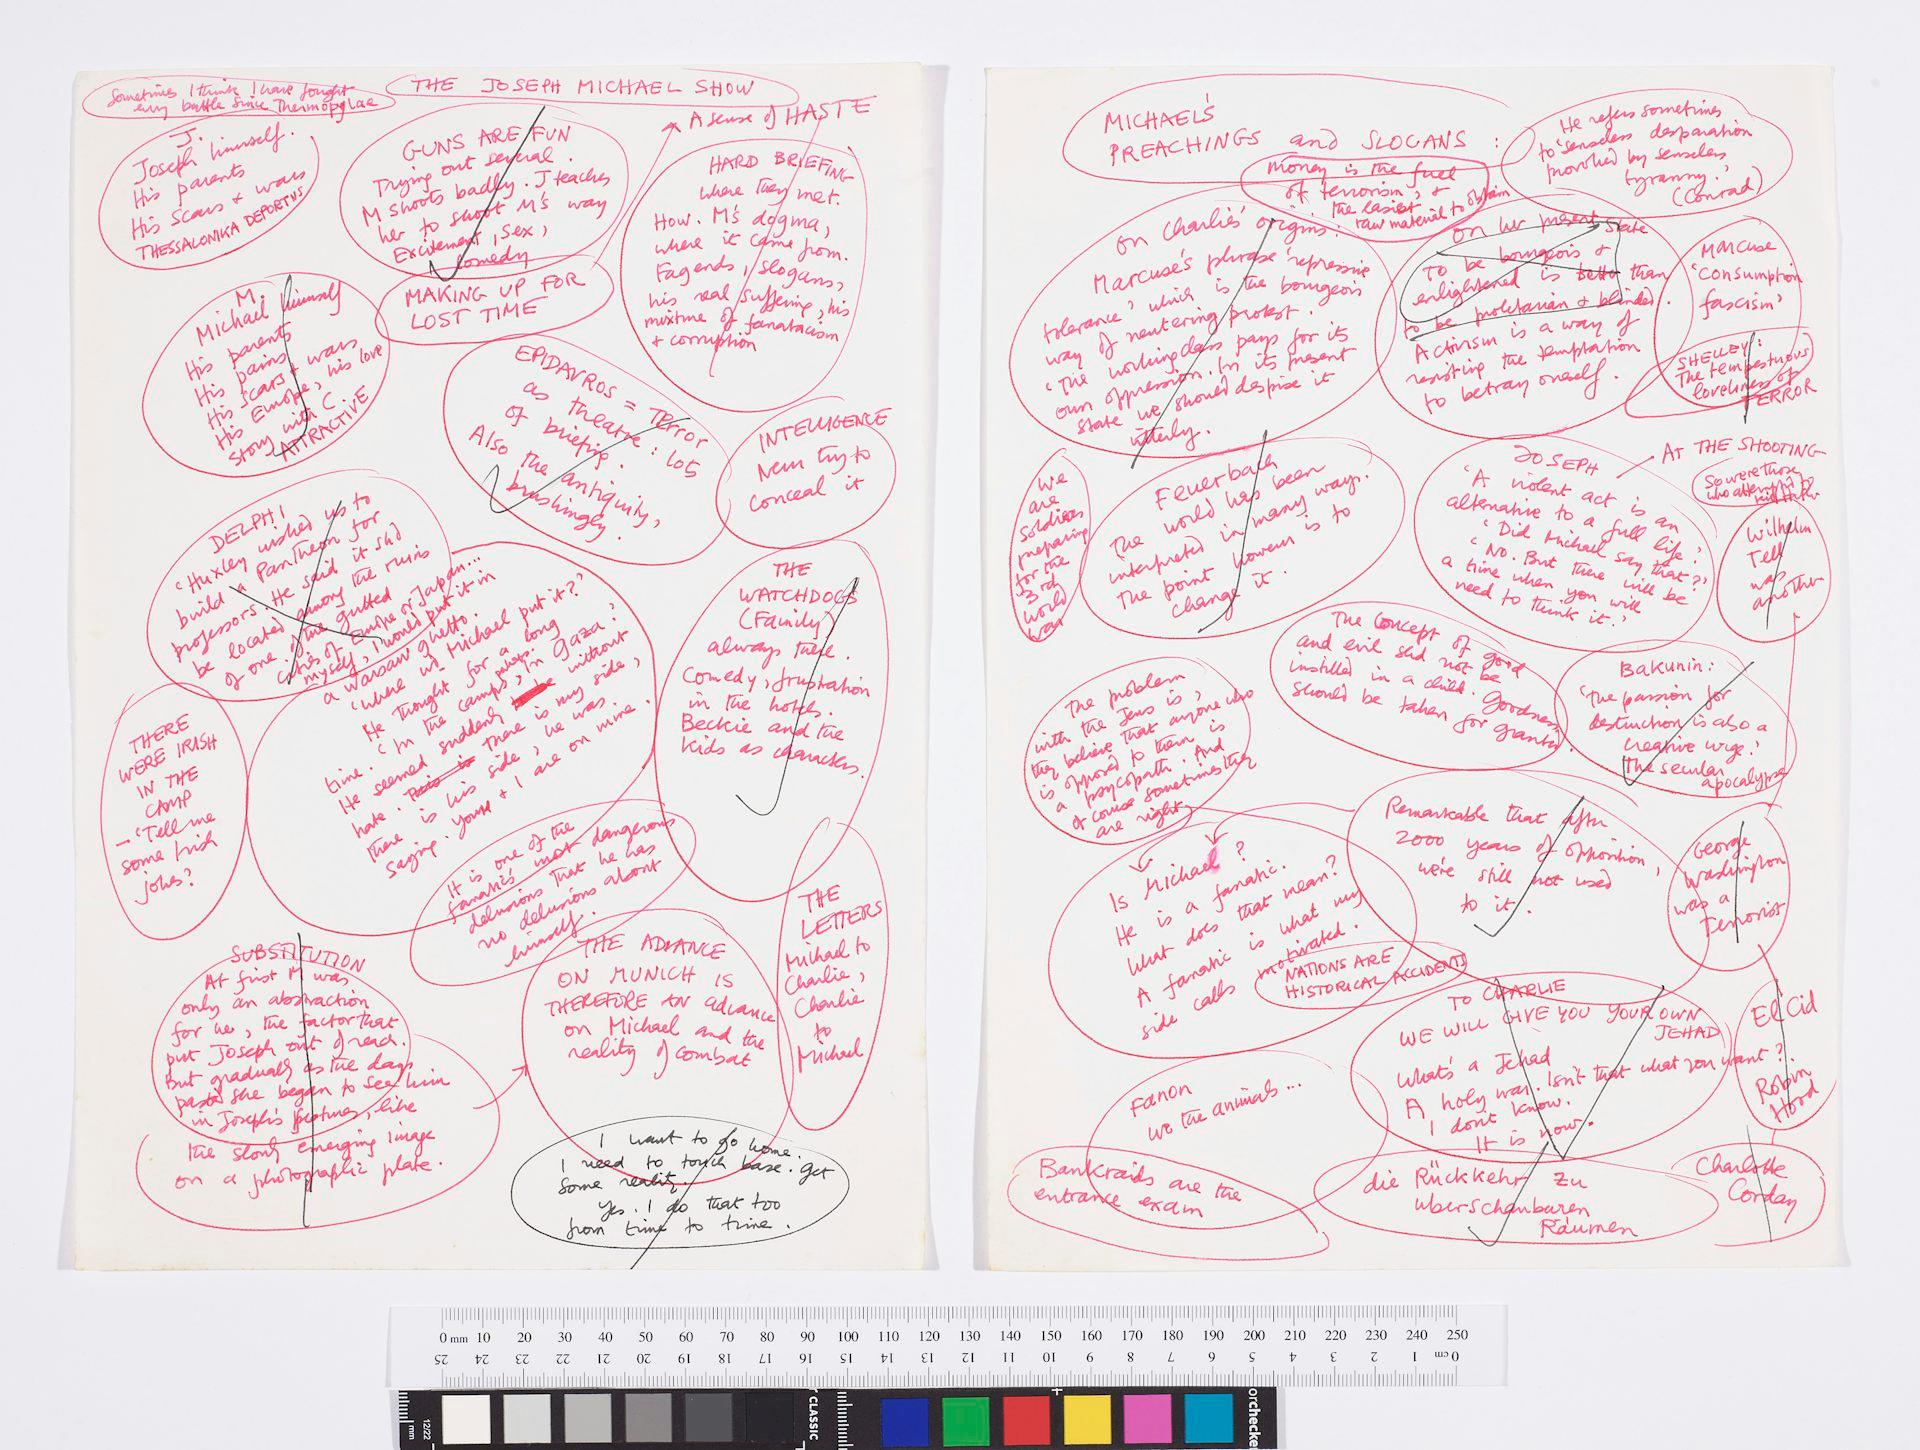 Sometimes I think I have fought
every battle since Thermopylae
THE JOSEPH MICHAEL SHOW
A sense of HASTE
J.
Joseph himself.
His parents
His scars & wars
THESSALONIKA DEPORTUS
GUNS ARE FUN
Trying out several.
M shoots badly. J teaches
her to shoot M's way
Excitement, sex,
comedy
HARD BRIEFING
Where they met.
How. M's dogma,
where it came from.
Fagends, slogans,
his real suffering, his
mixture of fanaticism
& corruption
MAKING UP FOR
LOST TIME
M.
Michael himself
His parents
His pains
His scars & wars
His Europe, his love
story with C.
ATTRACTIVE
EPIDAVROS = TERROR
as theatre: lots
of briefing.
Also the antiquity,
brushingly.
INTELLIGENCE
Never try to
conceal it
DELPHI
'Huxley wished us to
build a Pantheon for
professors. He said it shd
be located among the ruins
of one of the gutted
cities of Europe or Japan...
myself, I would put it in
a Warsaw ghetto.
'Where wd Michael put it?'
He thought for a long
time. 'In the camps, perhaps. In Gaza.'
He seemed suddenly to be without
hate. There is my side,
there is his side, he was
saying. Yours & I are on mine.
THE
WATCHDOGS
(Family)
always there.
Comedy, frustration
in the hotels.
Beckie and the
kids as characters.
THERE
WERE IRISH
IN THE
CAMP
– 'Tell me
some Irish
jokes?
It is one of the
fanatics' most dangerous
delusions that he has
no delusions about
himself.
THE
LETTERS
Michael to
Charlie,
Charlie
to
Michael
SUBSTITUTION
At first M was
only an abstraction
for her, the factor that
put Joseph out of reach.
But gradually as the days
pass she began to see him
in Joseph's features, like
the slowly emerging image
on a photographic plate.
THE ADVANCE
ON MUNICH IS
THEREFORE AN advance
on Michael and the
reality of combat
I want to go home.
I need to touch base. Get
some reality.
Yes. I do that too
from time to time.
MICHAEL'S
PREACHINGS and SLOGANS :
He refers sometimes
to 'senseless desparation
provoked by senseless
tyranny.'
(Conrad)
Money is the fuel
of terrorism, &
the easiest
raw material to obtain
On Charlie's origins:
Marcuse's phrase 'repressive
tolerance' which is the bourgeois
way of neutering protest.
'The working class pays for its
own oppression. In its present
state we should despise it
utterly.
On her present state
To be bourgeois &
enlightened is better than
to be proletarian & blinded.
Activism is a way of
resisting the temptation
to betray oneself.
Marcuse
'Consumption
fascism'
SHELLEY:
'The tempestuous
loveliness of
TERROR
We
are
soldiers
preparing
for the
3rd
world
war
Feuerbach
The world has been
interpreted in many ways.
The point however is to
change it.
JOSEPH
AT THE SHOOTING
'A violent act is an
alternative to a full life.'
'Did Michael say that?'
'No. But there will be
a time when you will
need to think it.'
So were those
who attempted to
kill Hitler
Wilhelm
Tell
was
another
The concept of good
and evil shd not be
instilled in a child. Goodness
should be taken for granted.
Bakunin:
'The passion for
destruction is also a
creative urge.'
The secular
apocalypse
The problem
with the Jews is,
they believe that anyone who
is opposed to them is
a psycopath. And
of course sometimes they
are right
Remarkable that after
2000 years of opposition,
we're still not used
to it.
George
Washington
was a
Terrorist
Is Michael?
He is a fanatic.
What does that mean?
A fanatic is what my
side calls motivated.
NATIONS ARE
HISTORICAL ACCIDENTS
TO CHARLIE
WE WILL GIVE YOU YOUR OWN
JEHAD
What's a Jehad
A holy war. Isn't that what you want?
I don't know.
It is now.
El Cid
Robin
Hood
Fanon
We the animals...
Bankraids are the
entrance exam
die Rückkehr zu
überschaubaren
Räumen
Charlotte
Corday
0 mm 10 20 30 40 50 60 70 80 90 100 110 120 130 140 150 160 170 180 190 200 210 220 230 240 250
25 24 23 22 21 20 19 18 17 16 15 14 13 12 11 10 9 8 7 6 5 4 3 2 1 0 cm
12/22
mm
CLASSIC
orchecker